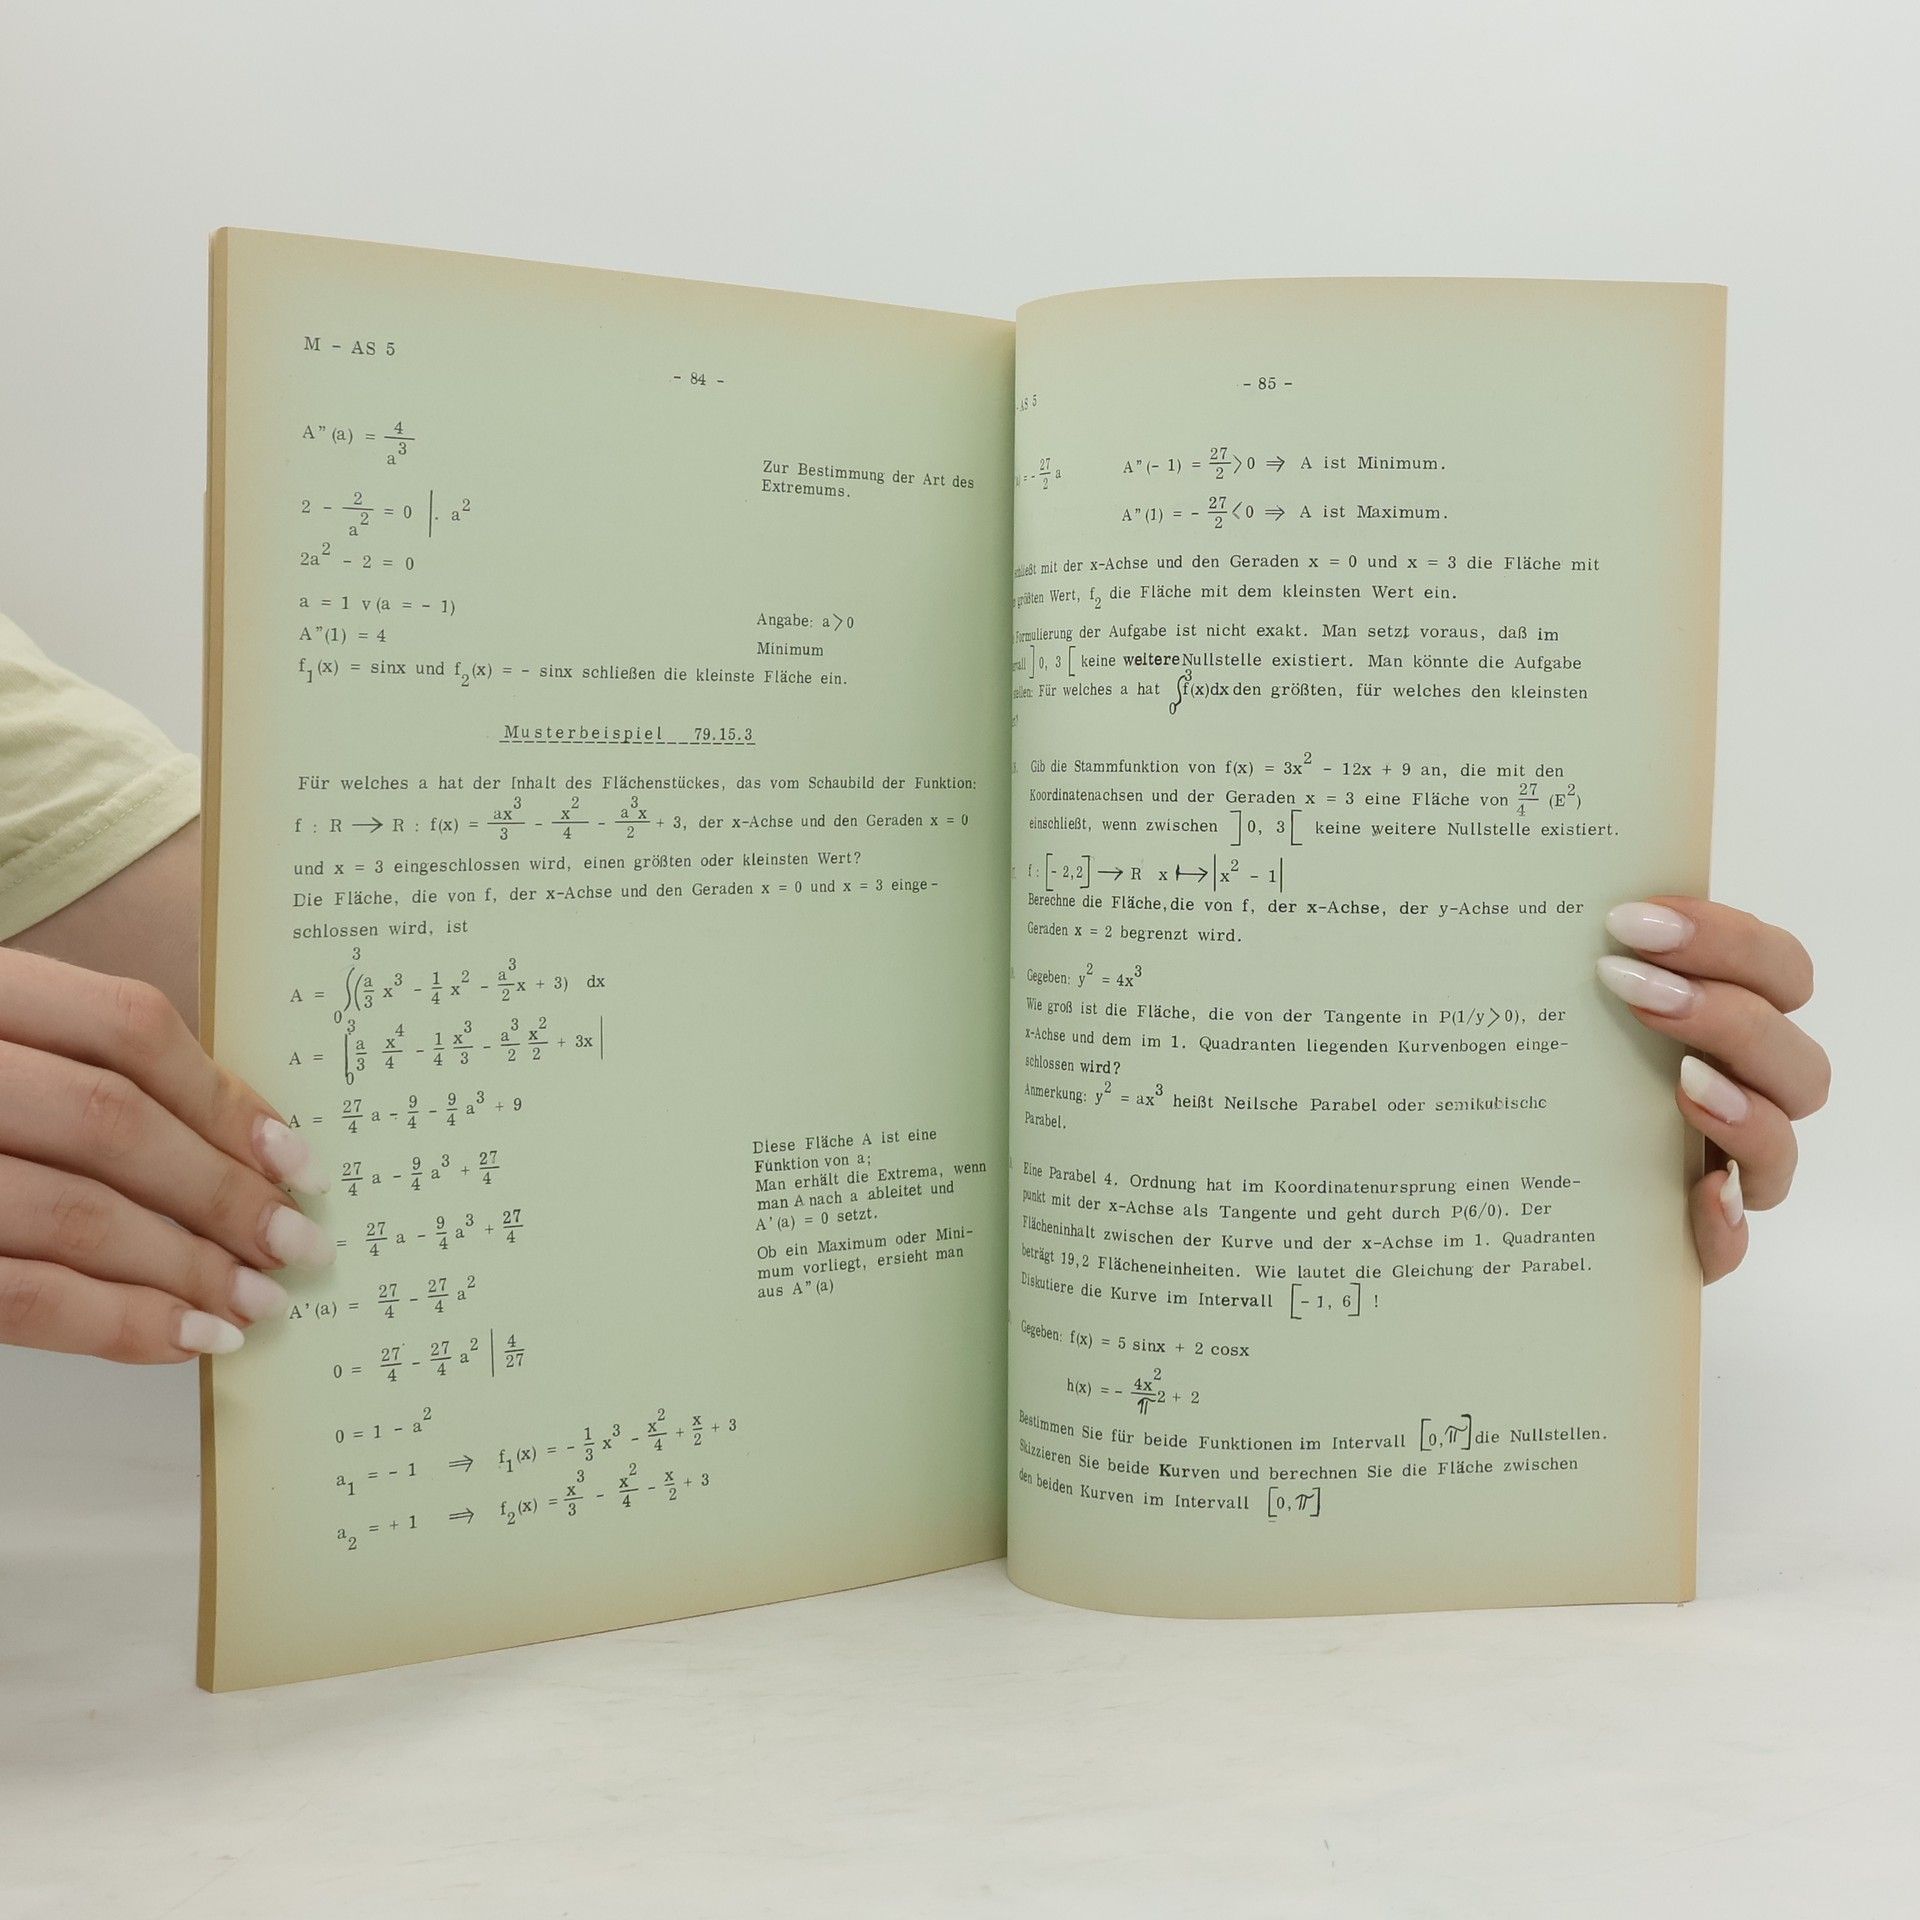 M - AS 5
- 84 -
A"(a) = 4/a^3
Zur Bestimmung der Art des
Extremums.
2 - 2/a^2 = 0 | . a^2
2a^2 - 2 = 0
a = 1 v (a = - 1)
Angabe: a > 0
A"(1) = 4
Minimum
f_1(x) = sinx und f_2(x) = - sinx schließen die kleinste Fläche ein.
Musterbeispiel 79.15.3
Für welches a hat der Inhalt des Flächenstückes, das vom Schaubild der Funktion:
f : R → R : f(x) = ax^3/3 - x^2/4 - a^3x/2 + 3, der x-Achse und den Geraden x = 0
und x = 3 eingeschlossen wird, einen größten oder kleinsten Wert?
Die Fläche, die von f, der x-Achse und den Geraden x = 0 und x = 3 einge-
schlossen wird, ist
A = ∫_0^3 (a/3 x^3 - 1/4 x^2 - a^3/2 x + 3) dx
A = |_0^3 a/3 x^4/4 - 1/4 x^3/3 - a^3/2 x^2/2 + 3x |
A = 27/4 a - 9/4 - 9/4 a^3 + 9
27/4 a - 9/4 a^3 + 27/4
= 27/4 a - 9/4 a^3 + 27/4
Diese Fläche A ist eine
Funktion von a;
Man erhält die Extrema, wenn
man A nach a ableitet und
A'(a) = 0 setzt.
Ob ein Maximum oder Mini-
mum vorliegt, ersieht man
aus A"(a)
A'(a) = 27/4 - 27/4 a^2
0 = 27/4 - 27/4 a^2 | 4/27
0 = 1 - a^2
a_1 = - 1 ⇒ f_1(x) = - 1/3 x^3 - x^2/4 + x/2 + 3
a_2 = + 1 ⇒ f_2(x) = x^3/3 - x^2/4 - x/2 + 3
- 85 -
AS 5
= - 27/2 a A"(- 1) = 27/2 > 0 ⇒ A ist Minimum.
A"(1) = - 27/2 < 0 ⇒ A ist Maximum.
mit der x-Achse und den Geraden x = 0 und x = 3 die Fläche mit
größten Wert, f_2 die Fläche mit dem kleinsten Wert ein.
Formulierung der Aufgabe ist nicht exakt. Man setzt voraus, daß im
]0, 3[ keine weitere Nullstelle existiert. Man könnte die Aufgabe
Für welches a hat ∫_0^3 f(x)dx den größten, für welches den kleinsten
Gib die Stammfunktion von f(x) = 3x^2 - 12x + 9 an, die mit den
Koordinatenachsen und der Geraden x = 3 eine Fläche von 27/4 (E^2)
einschließt, wenn zwischen ]0, 3[ keine weitere Nullstelle existiert.
f : [- 2,2] → R x ↦ |x^2 - 1|
Berechne die Fläche, die von f, der x-Achse, der y-Achse und der
Geraden x = 2 begrenzt wird.
Gegeben: y^2 = 4x^3
Wie groß ist die Fläche, die von der Tangente in P(1/y > 0), der
x-Achse und dem im 1. Quadranten liegenden Kurvenbogen einge-
schlossen wird?
Anmerkung: y^2 = ax^3 heißt Neilsche Parabel oder semikubische
Parabel.
Eine Parabel 4. Ordnung hat im Koordinatenursprung einen Wende-
punkt mit der x-Achse als Tangente und geht durch P(6/0). Der
Flächeninhalt zwischen der Kurve und der x-Achse im 1. Quadranten
beträgt 19,2 Flächeneinheiten. Wie lautet die Gleichung der Parabel.
Diskutiere die Kurve im Intervall [- 1, 6] !
Gegeben: f(x) = 5 sinx + 2 cosx
h(x) = - 4x^2/π^2 + 2
Bestimmen Sie für beide Funktionen im Intervall [0,π] die Nullstellen.
Skizzieren Sie beide Kurven und berechnen Sie die Fläche zwischen
den beiden Kurven im Intervall [0,π]